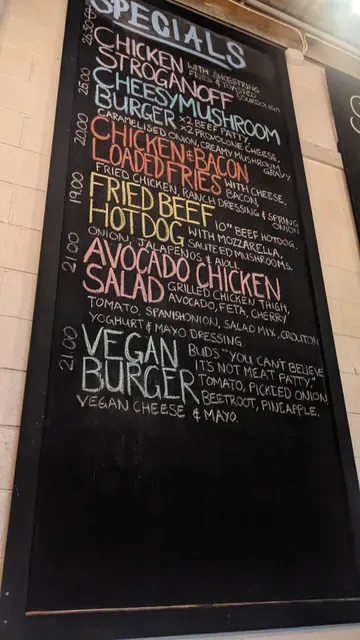 SPECIALS
26.50 CHICKEN WITH SHOESTRING
STROGANOFF FRIES & TOASTED
SOURDOUGH
25.00 CHEESY MUSHROOM
BURGER x2 BEEF PATTY,
x2 PROVOLONE CHEESE,
CARAMELISED ONION, CREAMY MUSHROOM GRAVY.
20.00 CHICKEN & BACON
LOADED FRIES WITH CHEESE,
BACON,
FRIED CHICKEN, RANCH DRESSING & SPRING
ONION
19.00 FRIED BEEF 10" BEEF HOTDOG.
HOTDOG WITH MOZZARELLA,
ONION, JALAPENOS & AIOLI. SAUTEED MUSHROOMS.
21.00 AVOCADO CHICKEN
SALAD GRILLED CHICKEN THIGH,
AVOCADO, FETA, CHERRY
TOMATO, SPANISH ONION, SALAD MIX, CROUTON
YOGHURT & MAYO DRESSING.
21.00 VEGAN BUDS "YOU CAN'T BELIEVE
IT'S NOT MEAT PATTY,"
BURGER TOMATO, PICKLED ONION
BEETROOT, PINEAPPLE.
VEGAN CHEESE & MAYO.